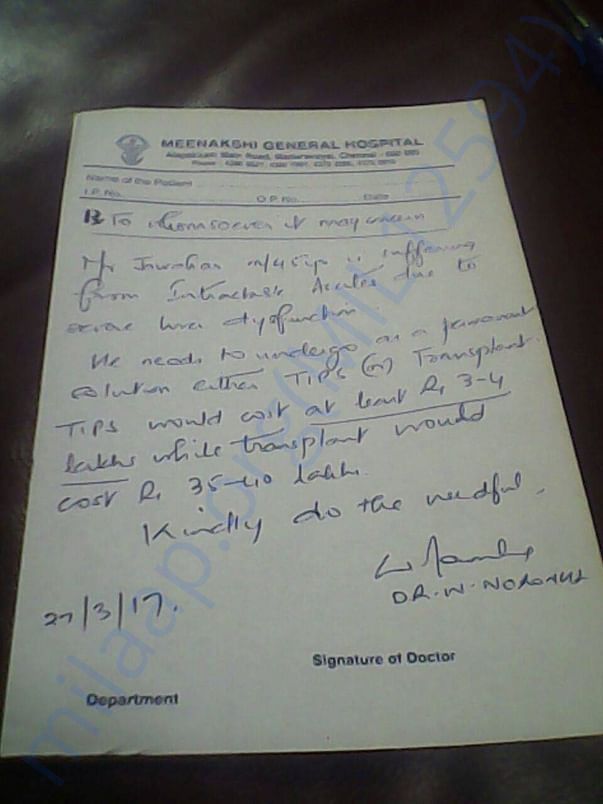 MEENAKSHI GENERAL HOSPITAL
Name of the Patient
I.P. No. O.P. No. Date
To whomsoever it may concern
Mr is suffering
from Ascites due to
severe liver dysfunction.
He needs to undergo as a permanent
solution either TIPS (or) Transplant.
TIPS would cost at least Rs 3-4
lakhs while transplant would
cost Rs 35-40 lakhs.
Kindly do the needful.
DR. W. NORONHA
27/3/17.
Signature of Doctor
Department
milaap.org(MIL12594)